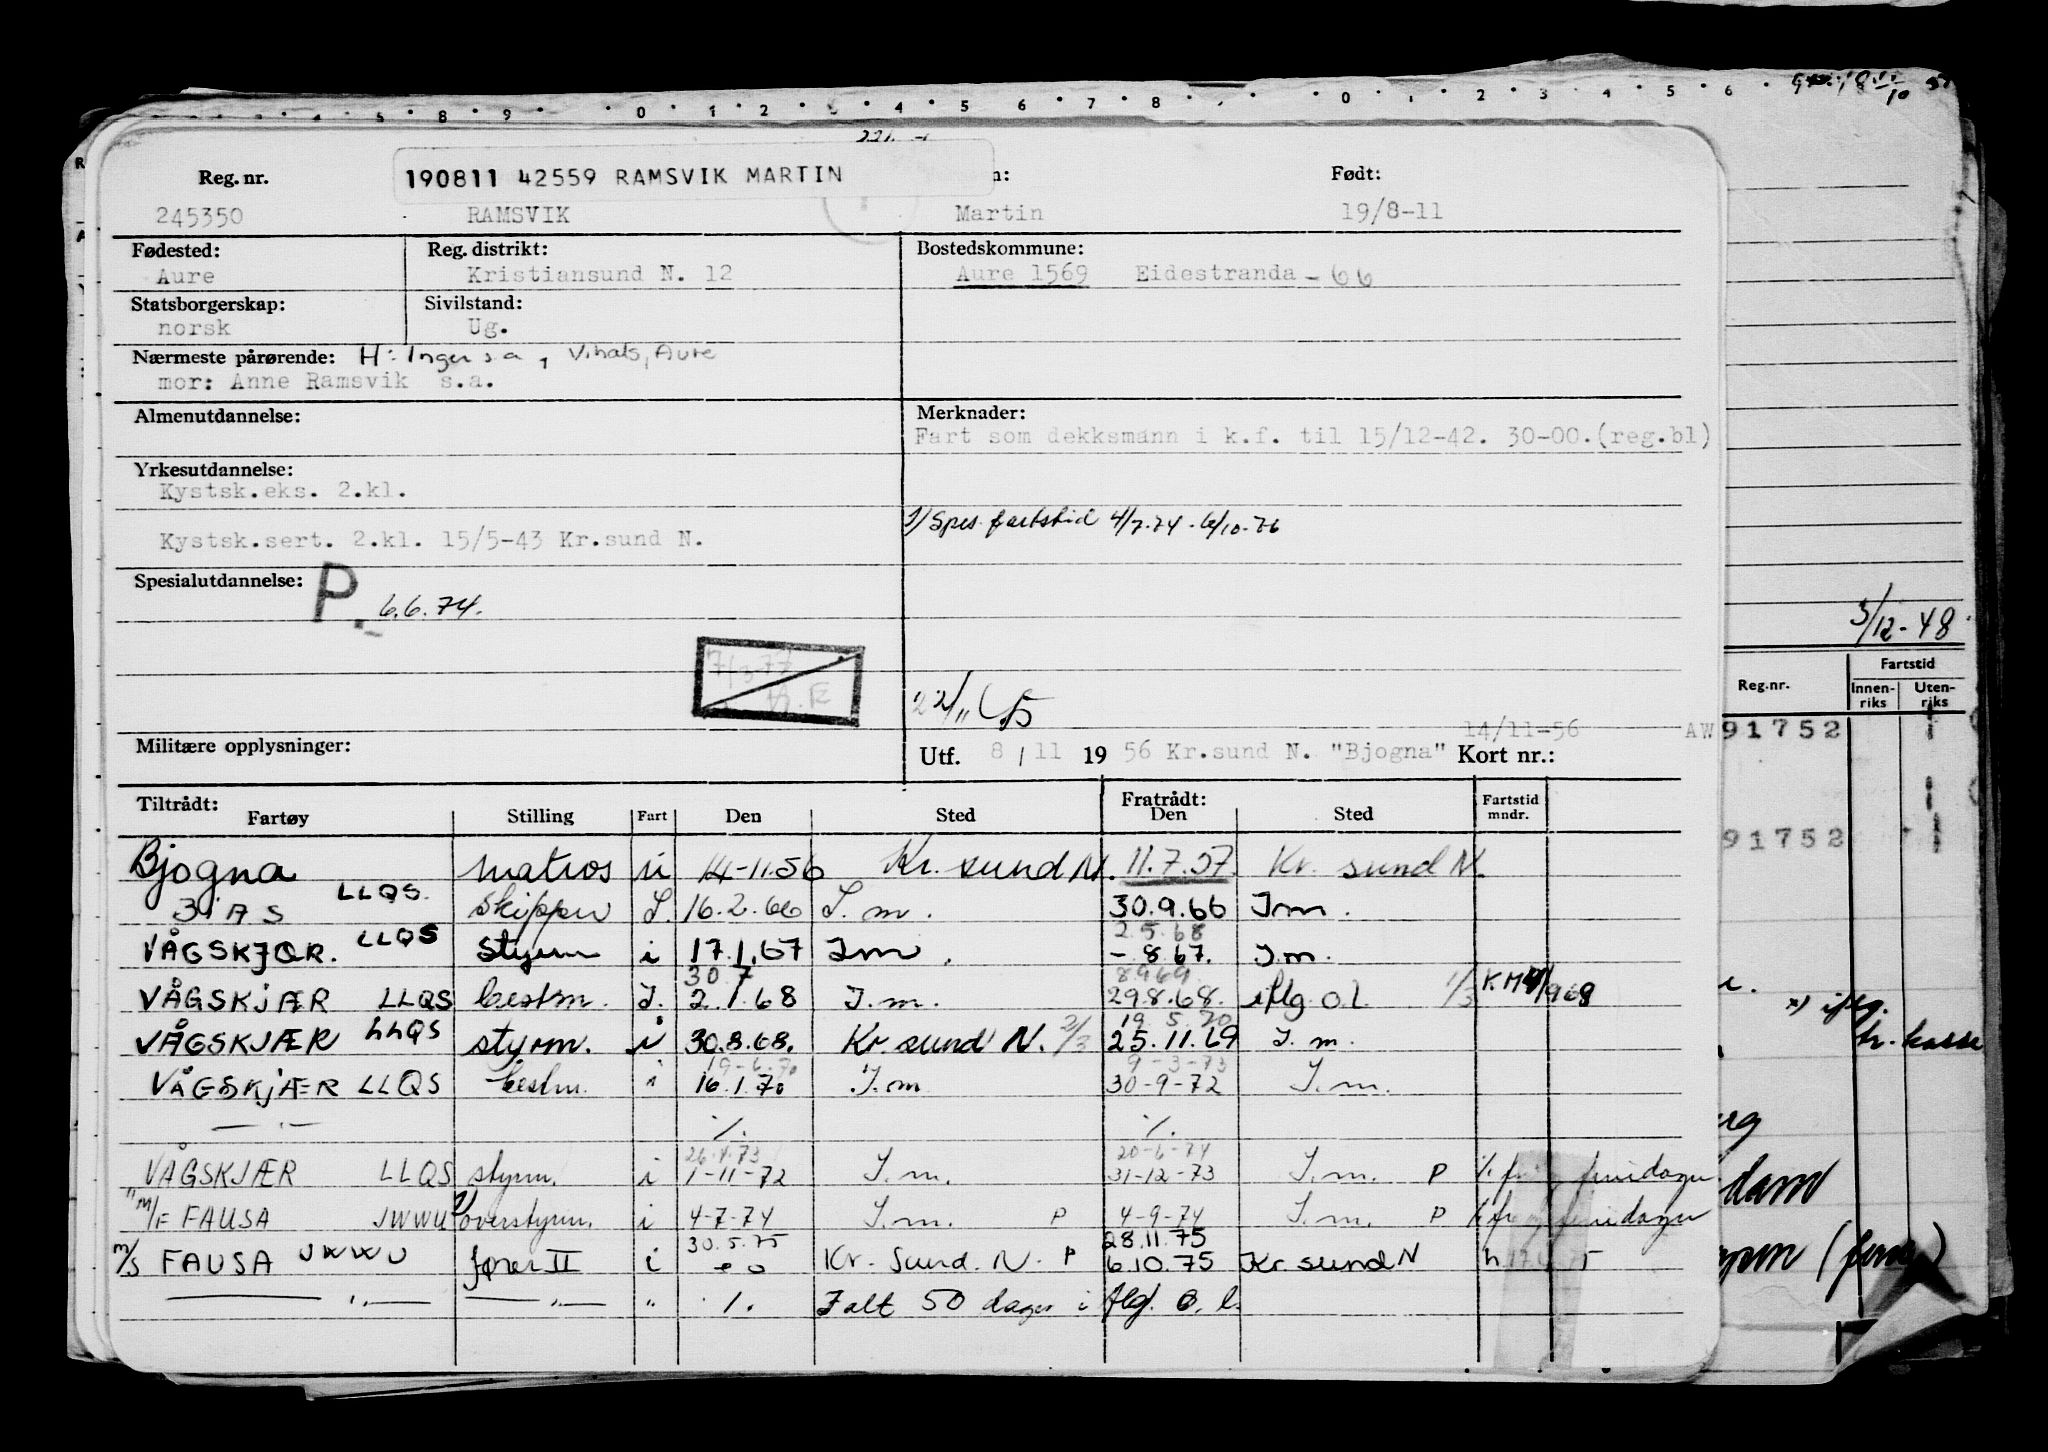 190811 42559 RAMSVIK MARTIN
Reg. nr. Født:
245350 RAMSVIK Martin 19/8-11
Fødested: Reg. distrikt: Bostedskommune:
Aure Kristiansund N. 12 Aure 1569 Eidestranda - 66
Statsborgerskap: Sivilstand:
norsk Ug.
Nærmeste pårørende: H: Inger s.a, Vihals, Aure
mor: Anne Ramsvik s.a.
Almenutdannelse: Merknader:
Fart som dekksmann i k.f. til 15/12-42. 30-00.(reg.bl)
Yrkesutdannelse:
Kystsk.eks. 2.kl.
1/ Spes. fartstid 4/7-74 - 6/10-76
Kystsk.sert. 2.kl. 15/5-43 Kr.sund N.
Spesialutdannelse: P. 6.6.74.
7/3-77
22/11
14/11-56
Militære opplysninger: Utf. 8 / 11 19 56 Kr.sund N. "Bjogna" Kort nr.:
Tiltrådt: Fratrådt: Fartstid mndr.
Fartøy Stilling Fart Den Sted Den Sted
Bjogna matros i 14-11.56 Kr. sund N. 11.7.57. Kr. sund N.
LLQS. Skipper I. 16.2.66 I. m. 30.9.66 I.m.
2.5.68
VÅGSKJØR. LLQS Styrm i 17.1.67 I m. - 8.67. I.m.
30 7 8.9.69.
VÅGSKJÆR LLQS bestm. I. 2.1.68 I. m. 29.8.68. iflg. o.l. 1/3
19.5.70
VÅGSKJÆR LLQS styrm. i 30.8.68. Kr. sund N. 2/3 25.11.69 I. m.
19-6-70 9-3-73
VÅGSKJÆR LLQS bestm. i 16.1.70 I.m 30-9-72 I.m.
— " — ./. ./.
26.4.73 20-6-74
VÅGSKJÆR LLQS styrm. i 1-11-72 I.m. 31-12-73 I.m. P feridager
m/F FAUSA JWWU 1/ overstyrm. i 4-7-74 I.m. P 4-9-74 I.m. P feridager
30.5.75 28.11.75
m/S FAUSA JWWU fører II i Kr. Sund. N. P 6.10.75 Kr sund N
— " — — " — " ./. I alt 50 dager i flg. o. l.
5/12-48
Fartstid
Reg.nr. Innen-riks Uten-riks
AW91752
91752
kr. kasse